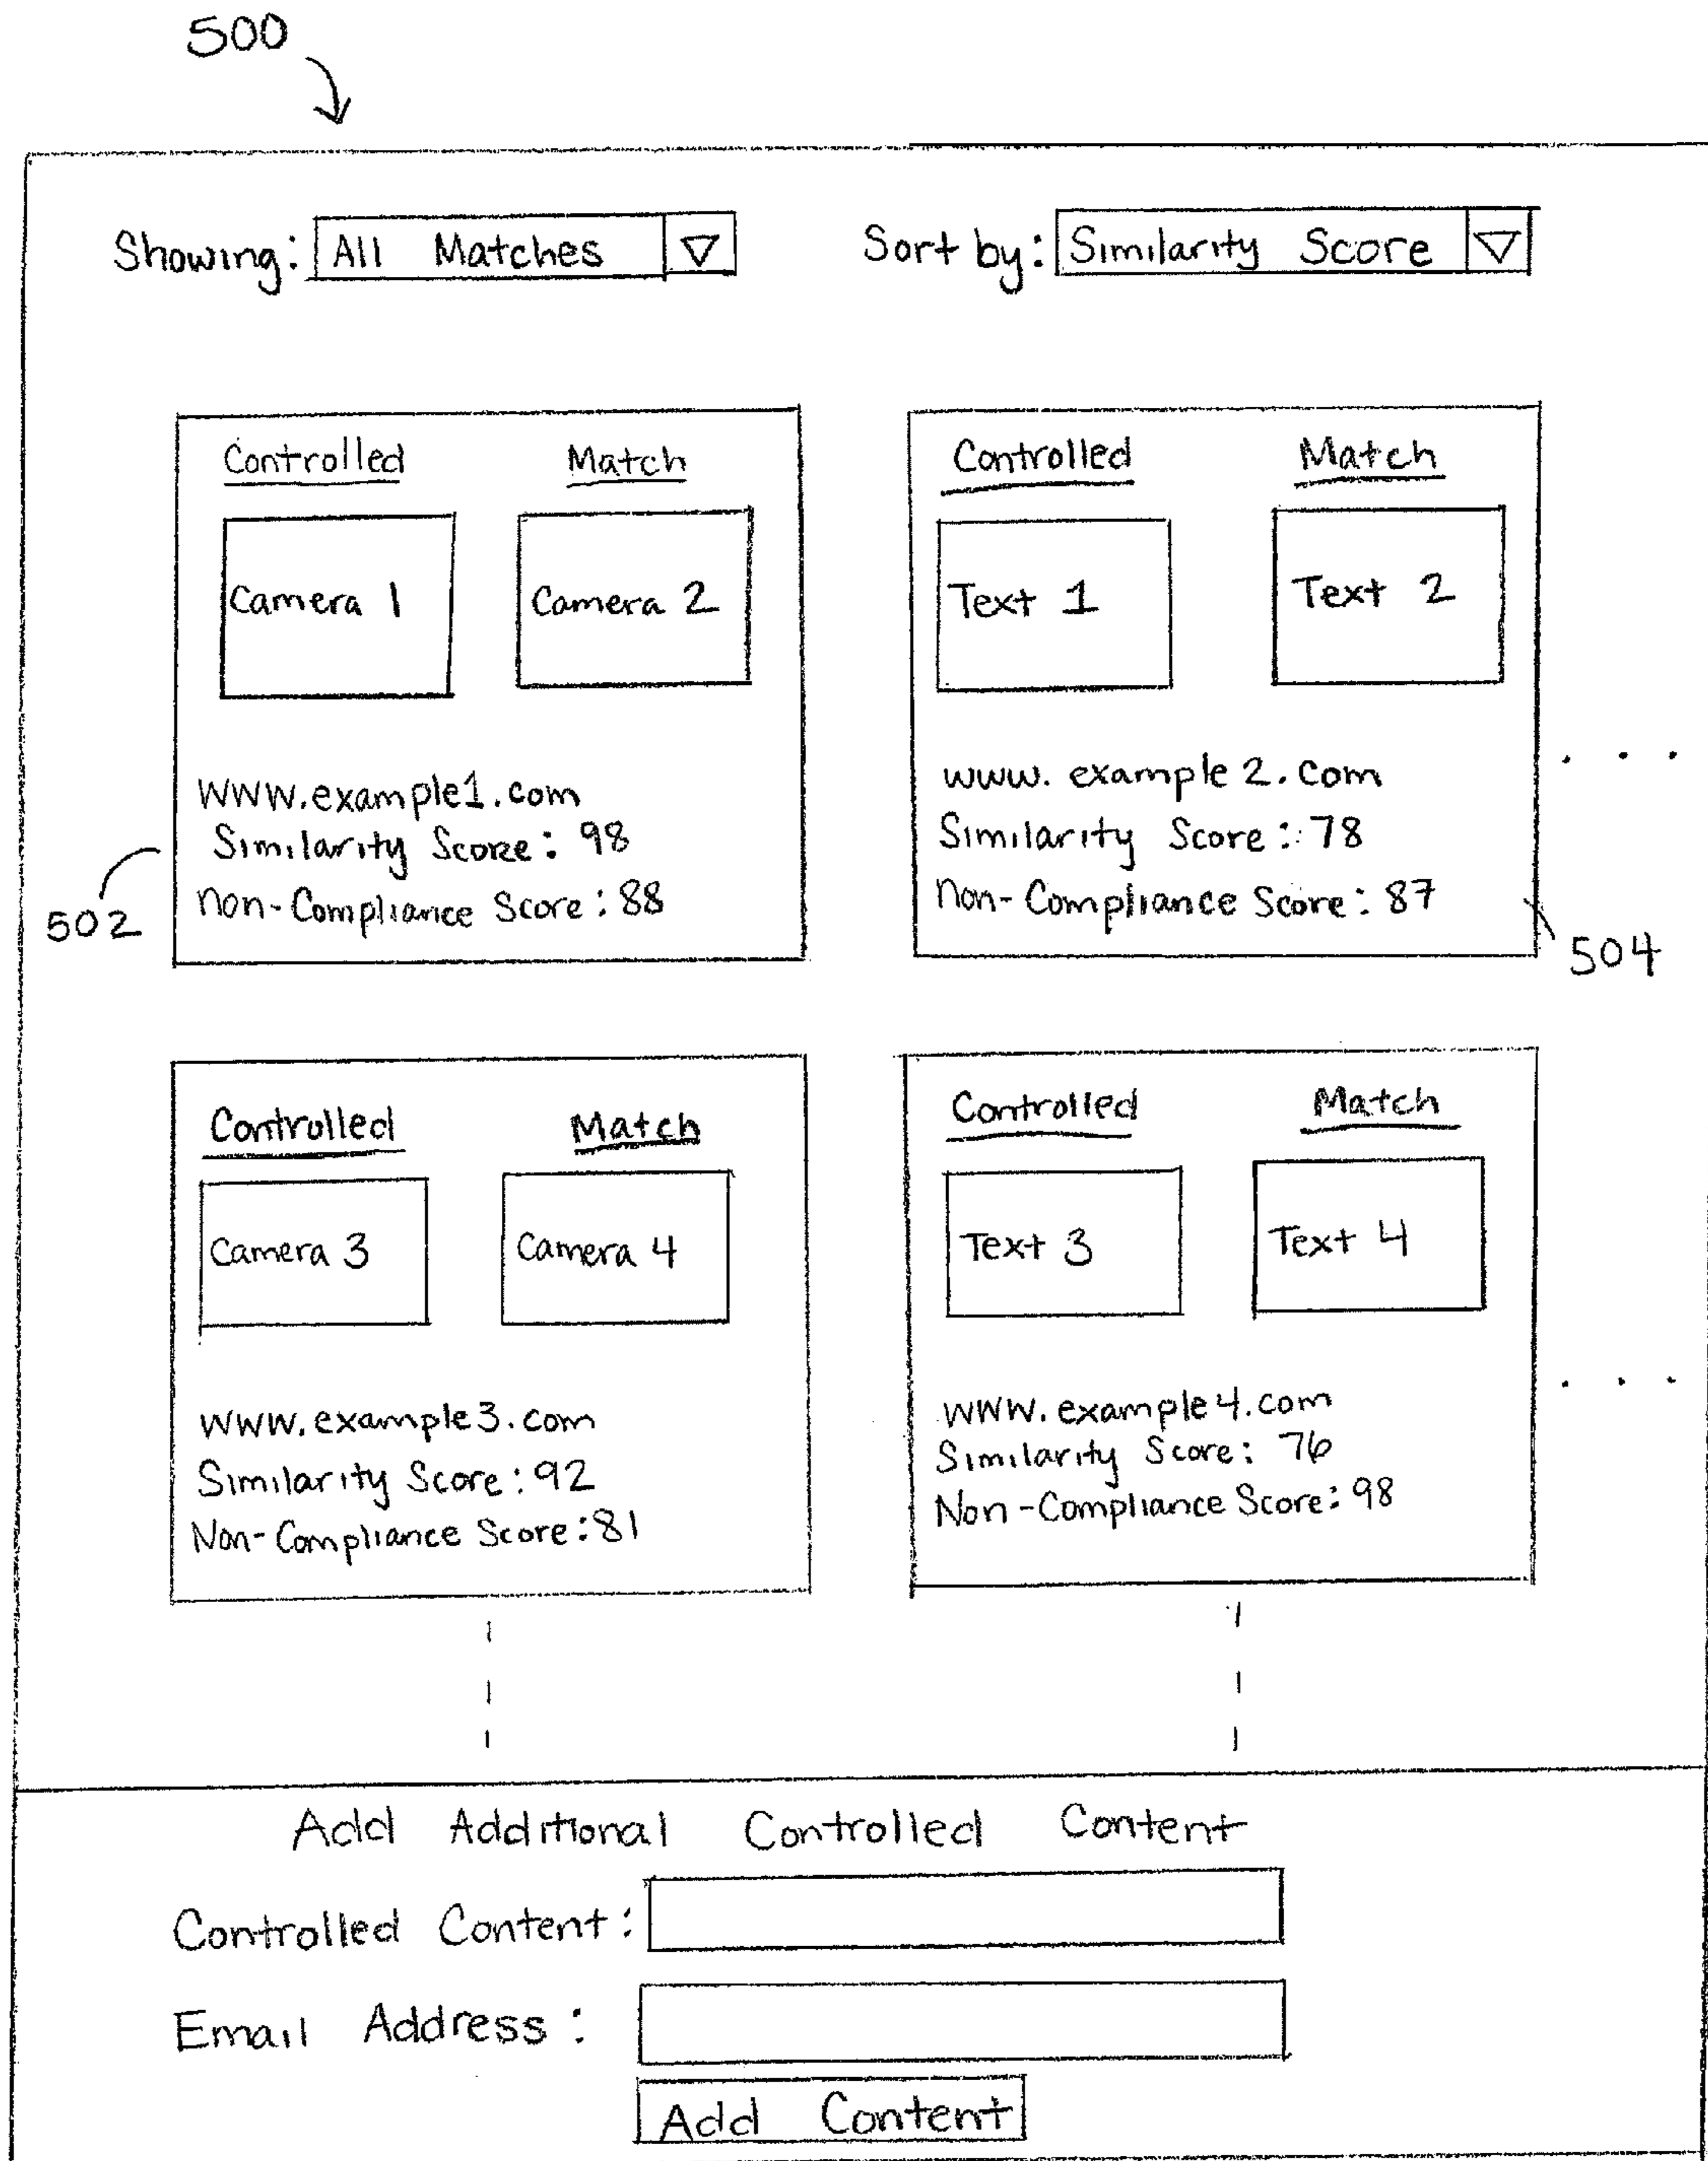 500
Showing: All Matches
Sort by: Similarity Score
Controlled Match
Camera 1 Camera 2
www.example1.com
Similarity Score: 98
Non-Compliance Score: 88
502
Controlled Match
Text 1 Text 2
www.example2.com
Similarity Score: 78
Non-Compliance Score: 87
504
Controlled Match
Camera 3 Camera 4
www.example3.com
Similarity Score: 92
Non-Compliance Score: 81
Controlled Match
Text 3 Text 4
www.example4.com
Similarity Score: 76
Non-Compliance Score: 98
Add Additional Controlled Content
Controlled Content:
Email Address:
Add Content